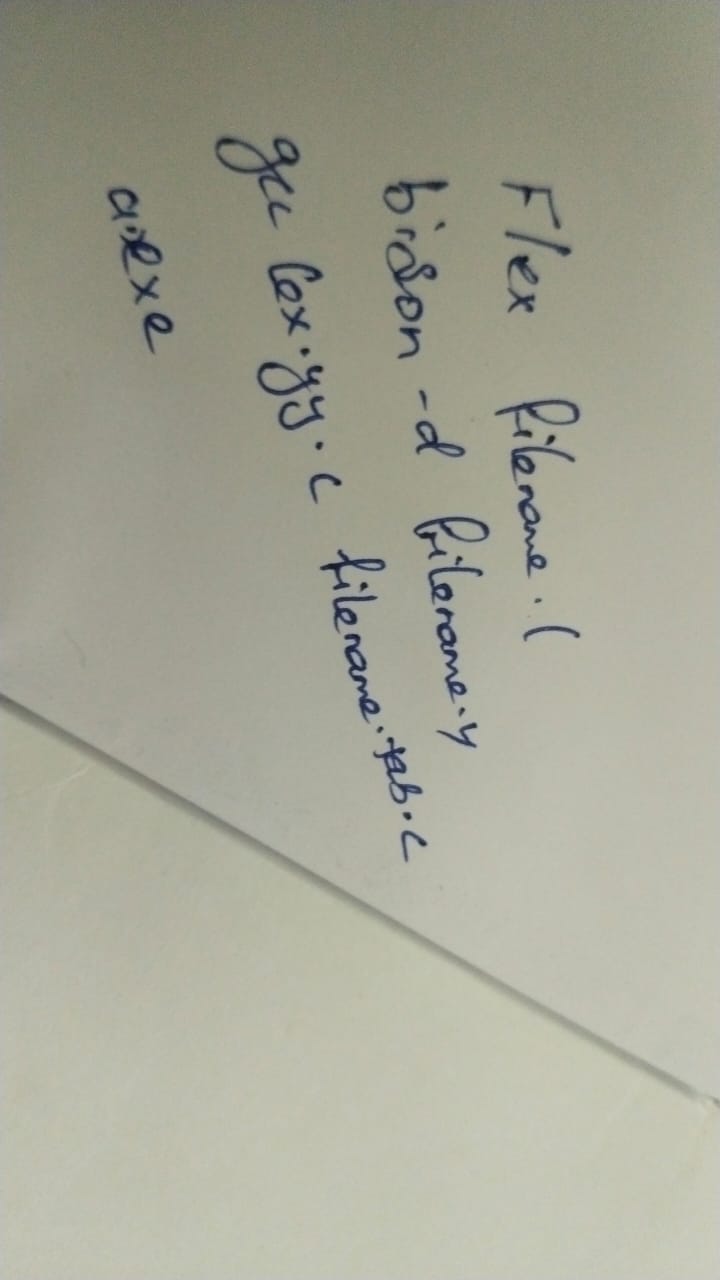 Flex filename.l
bison -d filename.y
gcc lex.yy.c filename.tab.c
a.exe